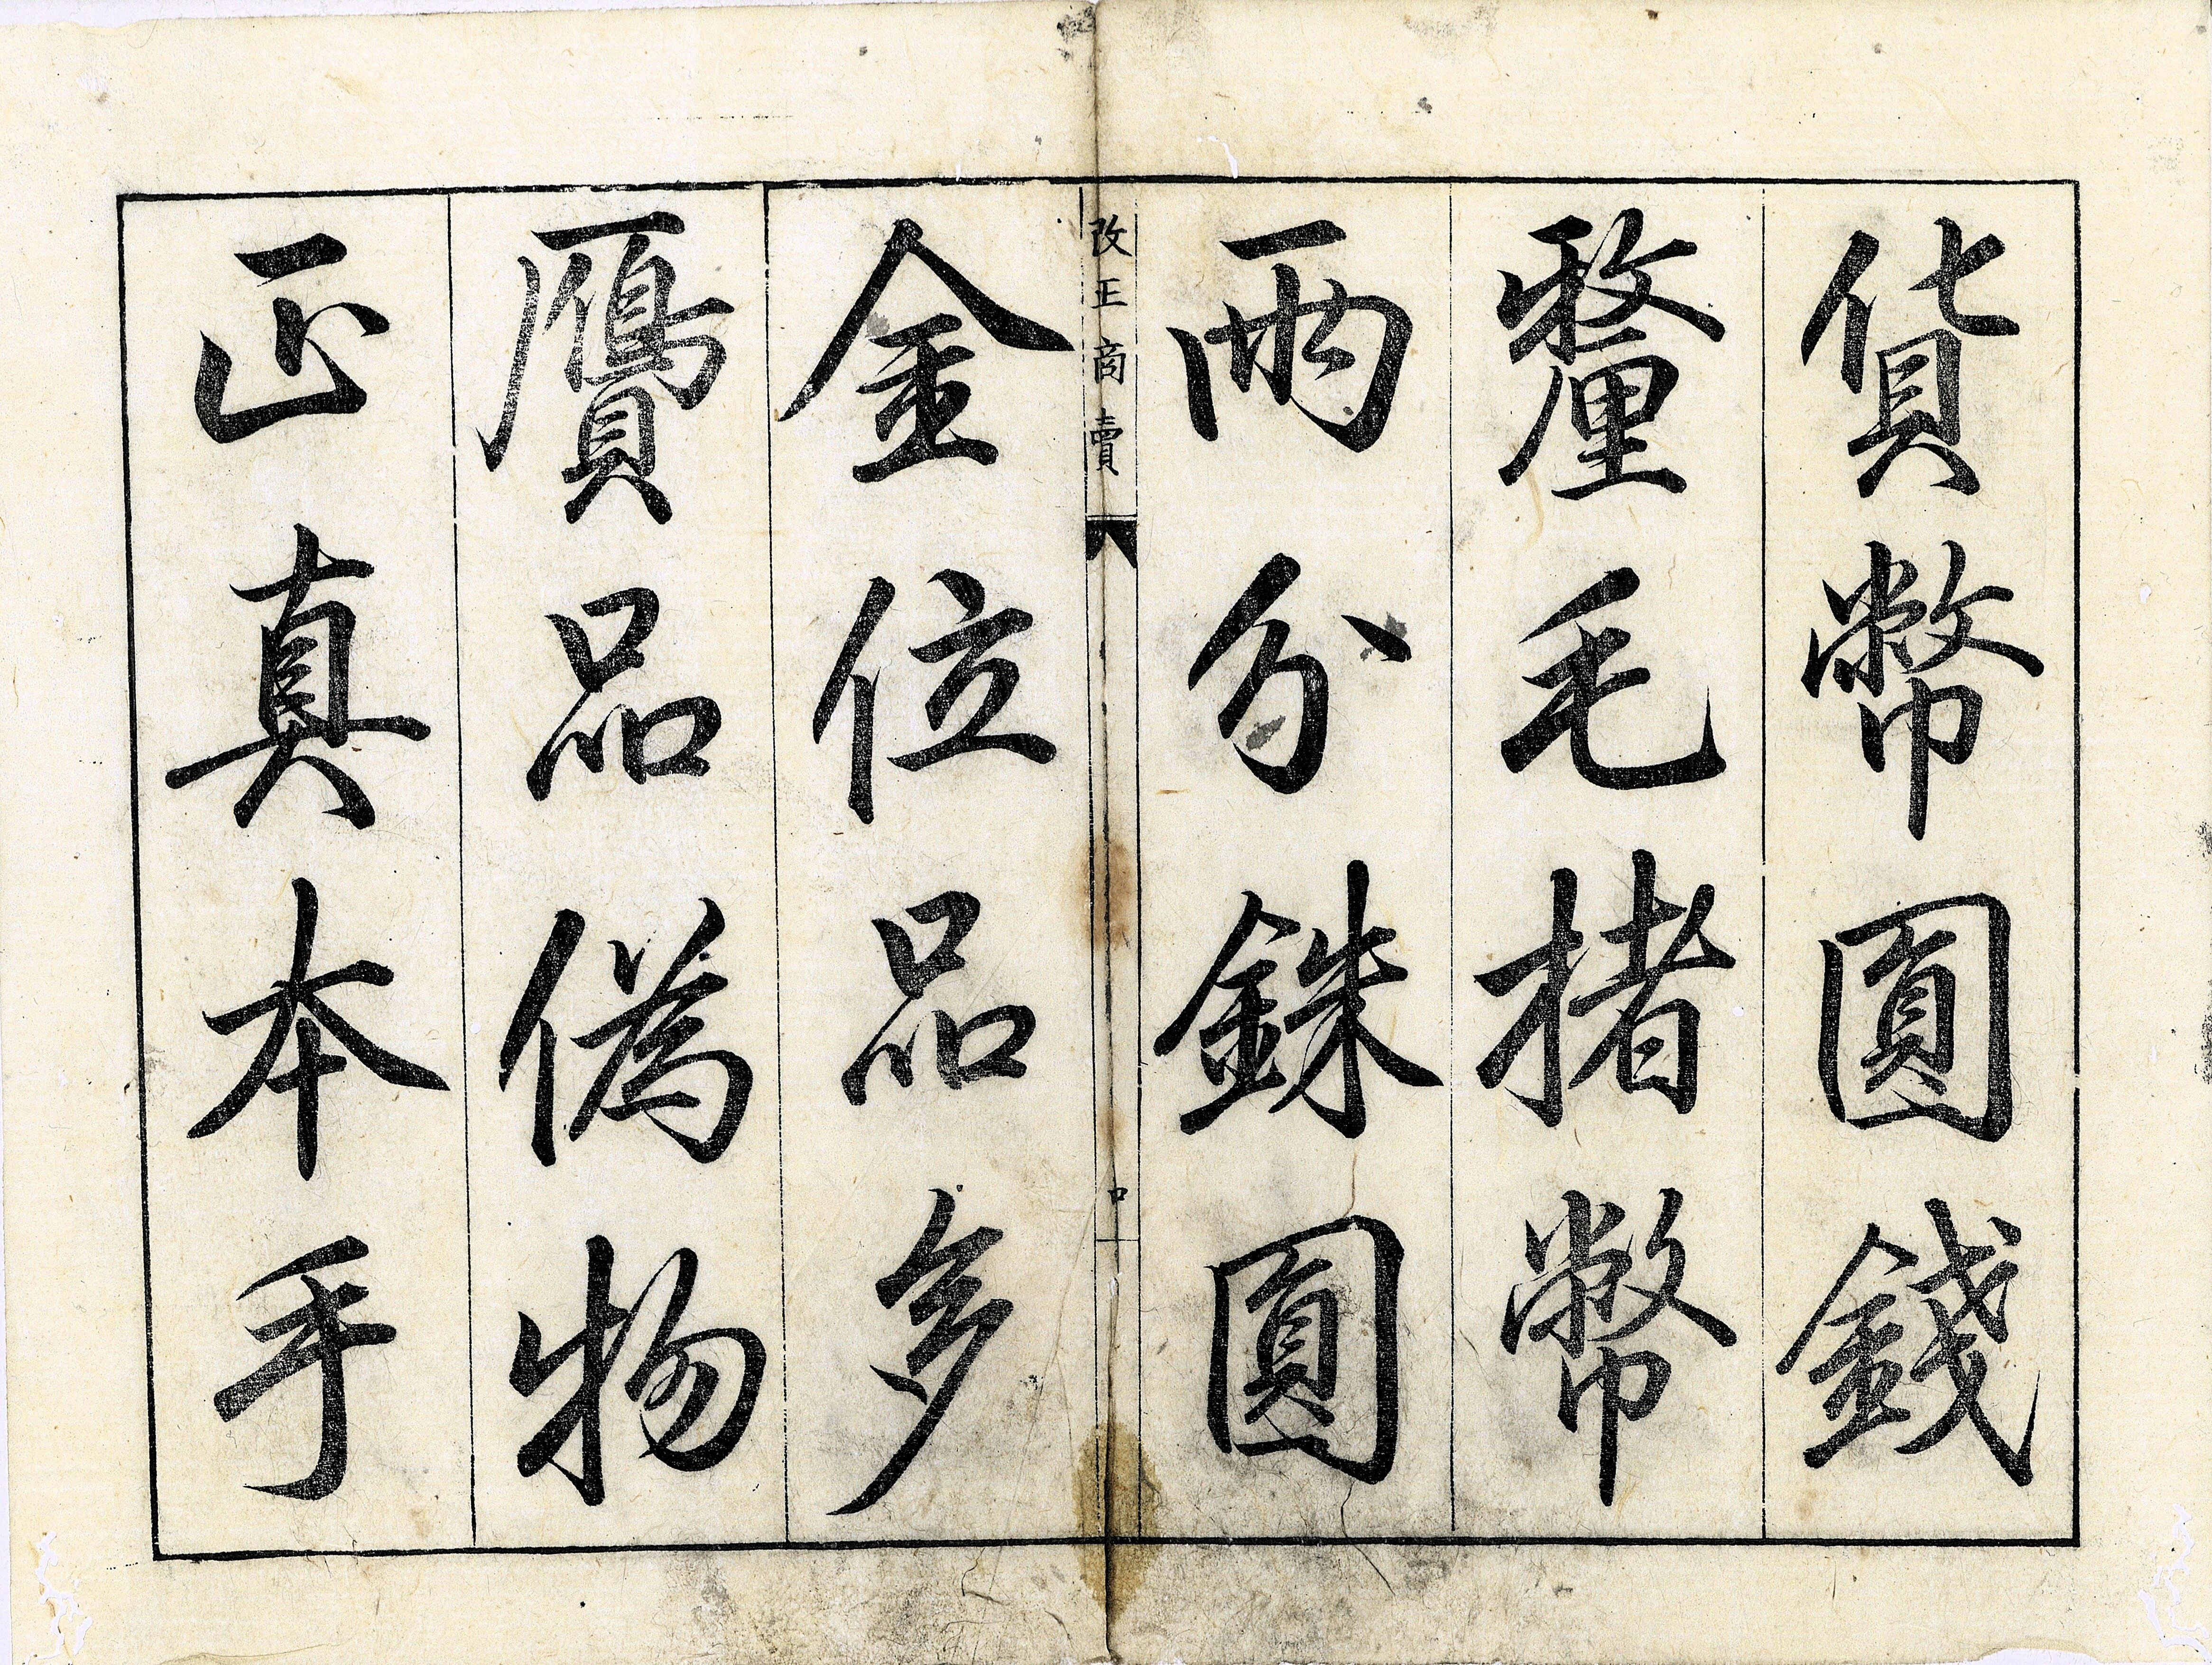 貨幣圓錢
釐毛楮幣
兩分銖圓
改正商賣
口
金位品多
贋品偽物
正真本手